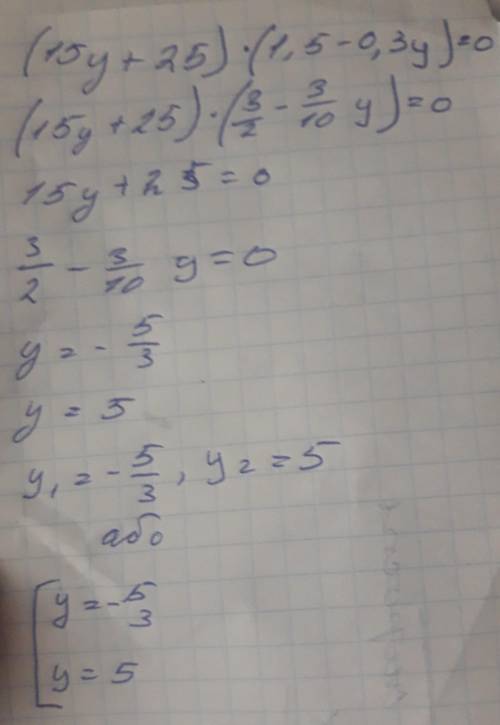 (15y + 25) · (1,5 - 0,3y) = 0
(15y + 25) · (3/2 - 3/10 y) = 0
15y + 25 = 0
3/2 - 3/10 y = 0
y = - 5/3
y = 5
y₁ = - 5/3 , y₂ = 5
або
[ y = - 5/3
y = 5